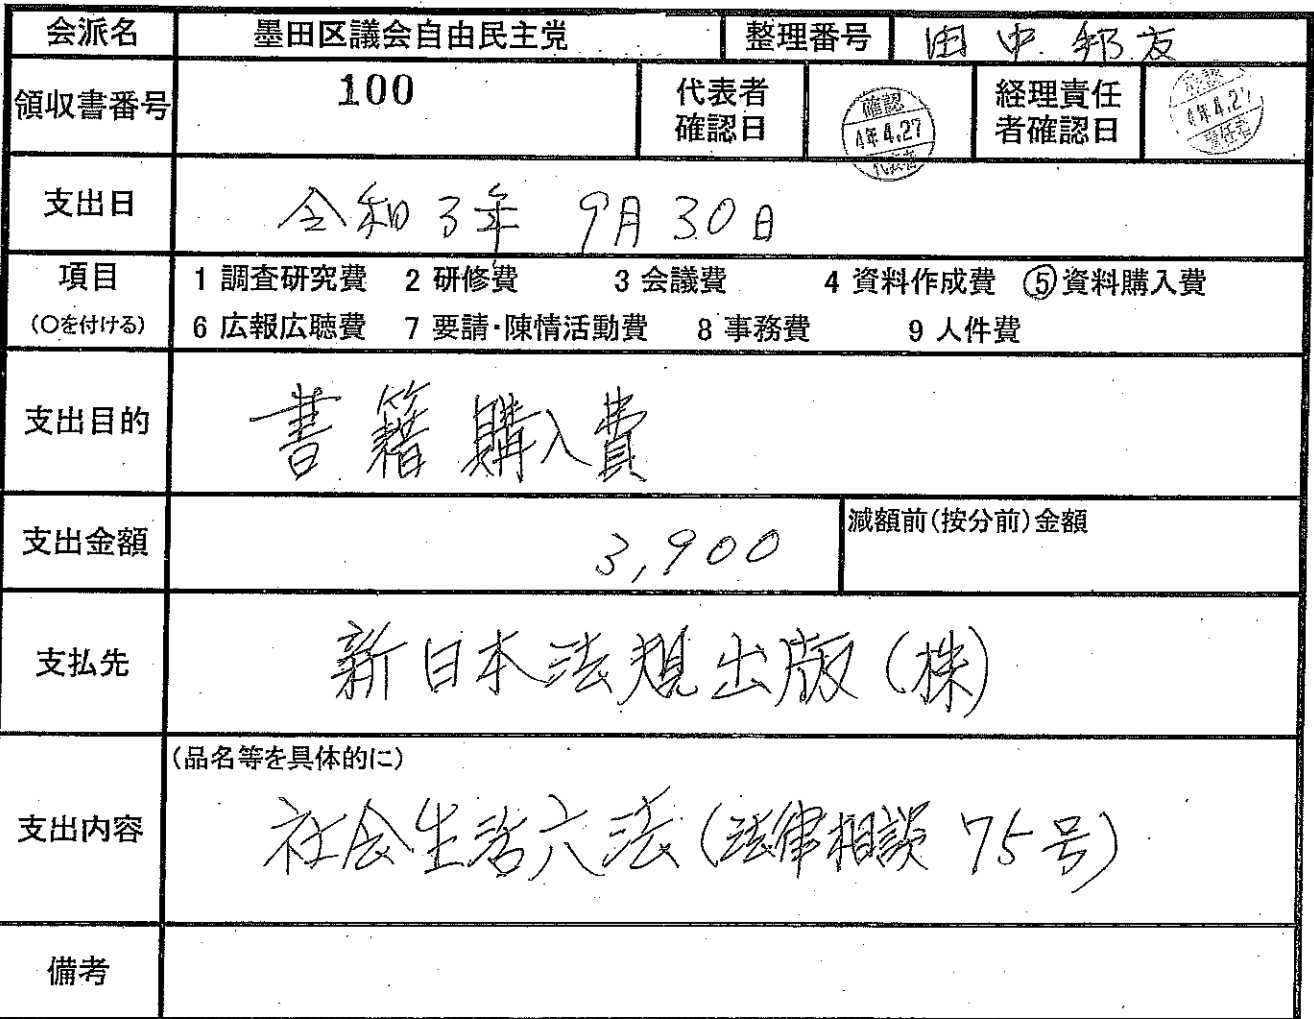 会派名 墨田区議会自由民主党 整理番号 田中邦友
領収書番号 100 代表者確認日 確認 4年4.27 代表者 経理責任者確認日 確認 4年4.27 責任者
支出日 令和3年 9月30日
項目 (○を付ける) 1 調査研究費 2 研修費 3 会議費 4 資料作成費 ⑤資料購入費
6 広報広聴費 7 要請・陳情活動費 8 事務費 9 人件費
支出目的 書籍購入費
支出金額 3,900 減額前(按分前)金額
支払先 新日本法規出版(株)
支出内容 (品名等を具体的に)
社会生活六法(法律相談 75号)
備考